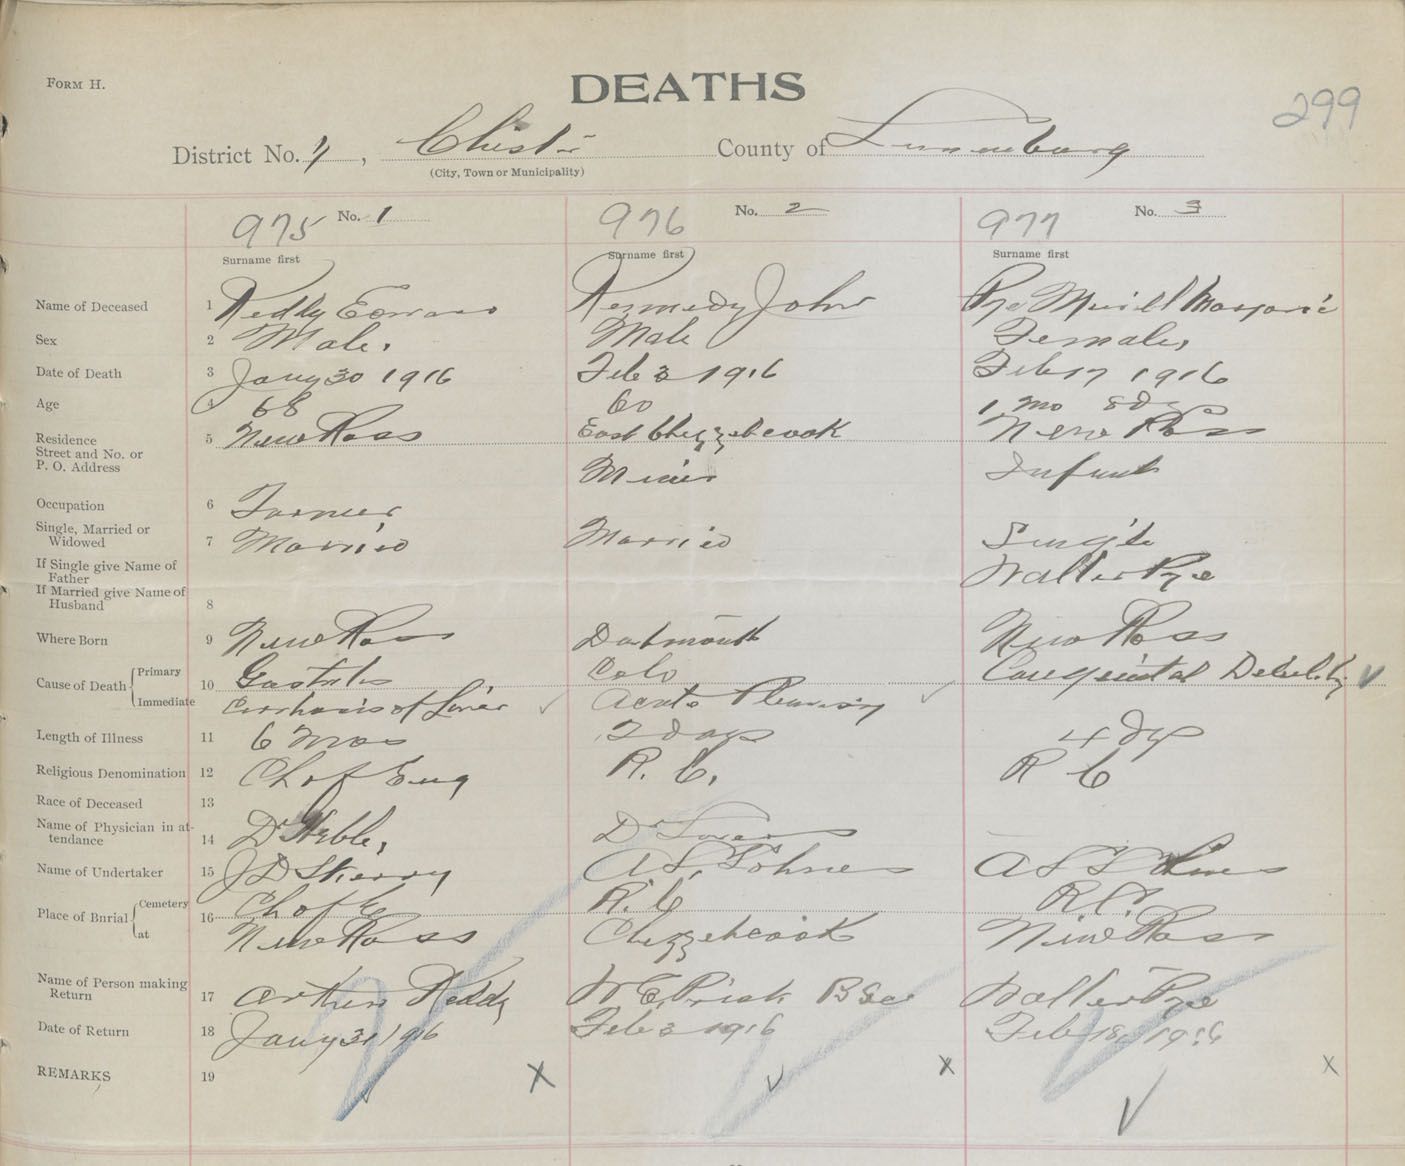 FORM H.
DEATHS
299
District No. 4, Chester County of Lunenburg
(City, Town or Municipality)
975 No. 1 976 No. 2 977 No. 3
Surname first Surname first Surname first
Name of Deceased 1 Reddy Edward Kennedy John Pye Murill Marjorie
Sex 2 Male. Male Female,
Date of Death 3 Jany 30 1916 Feb 2 1916 Feb 17 1916
Age 4 68 60 1 mo 8 dys
Residence Street and No. or P. O. Address 5 New Ross East Chezzetcook New Ross
Miner Infant
Occupation 6 Farmer
Single, Married or Widowed 7 Married Married Single
If Single give Name of Father Walter Pye
If Married give Name of Husband 8
Where Born 9 New Ross Dartmouth New Ross
Cause of Death { Primary 10 Gastritis Cold Congenital Debility
Immediate Cirrhosis of Liver Acute Pleurisy
Length of Illness 11 6 mos 2 days 4 dys
Religious Denomination 12 Ch of Eng R. C. R C
Race of Deceased 13
Name of Physician in attendance 14 Dr Hebb, Dr
Name of Undertaker 15 J D Skerry A S. A S
Place of Burial { Cemetery 16 Ch of E R. C R C.
at New Ross Chezzetcook New Ross
Name of Person making Return 17 Arthur Reddy W E Walter Pye
Date of Return 18 Jany 31 1916 Feb 2 1916 Feb 18, 1916
REMARKS 19 X X X